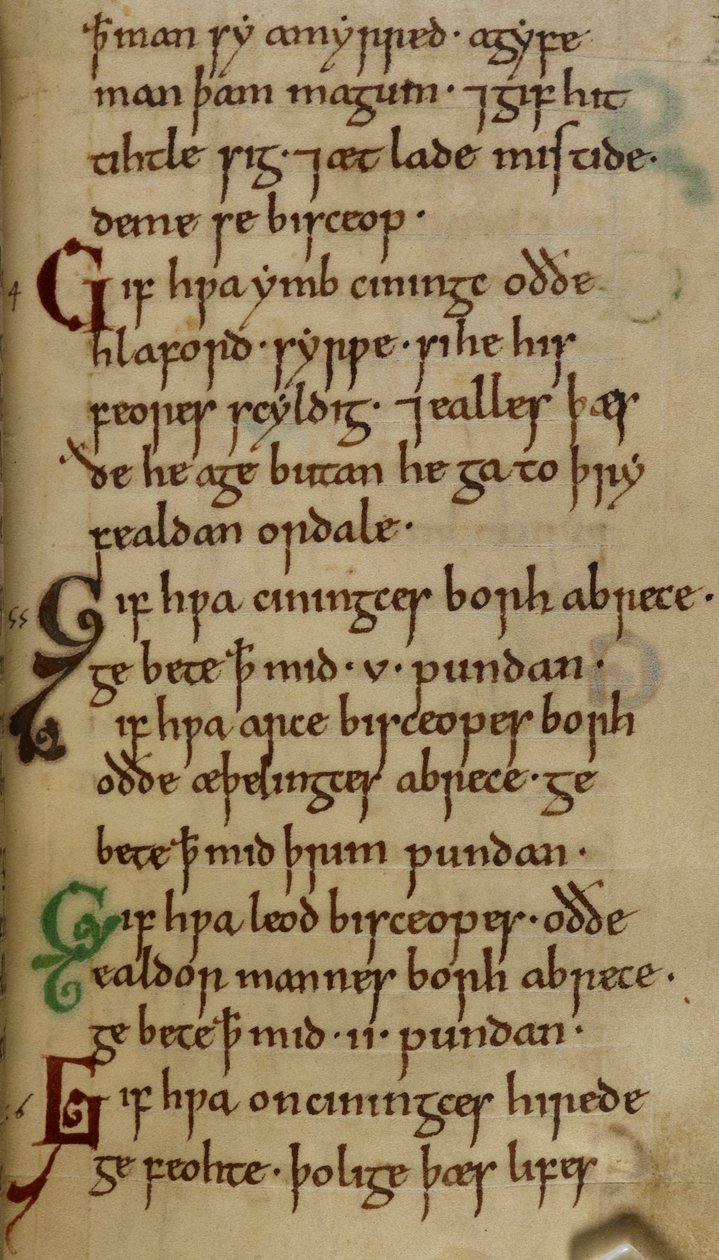 ꝥ man sẏ amẏrred· agẏfe
man þam magum· ⁊ gif hit
tihtle sig· ⁊ æt lade mistide·
deme se bisceop·
4 Gif hƿa ẏmb ciningc oððe
hlaford· sẏrƿe· si he his
feores scẏldig· ⁊ ealles þæs
ðe he age butan he ga to þrẏ
fealdan ordale·
55 Gif hƿa ciningces borh abrece·
ge bete ꝥ mid· v· pundan·
Gif hƿa arce bisceopes borh
oððe æþelingces abrece· ge
bete ꝥ mid þrim pundan·
Gif hƿa leod bisceopes· oððe
ealdor mannes borh abrece·
ge bete ꝥ mid ·ii· pundan·
Gif hƿa on ciningces hirede
ge feohte· þolige þæs lifes